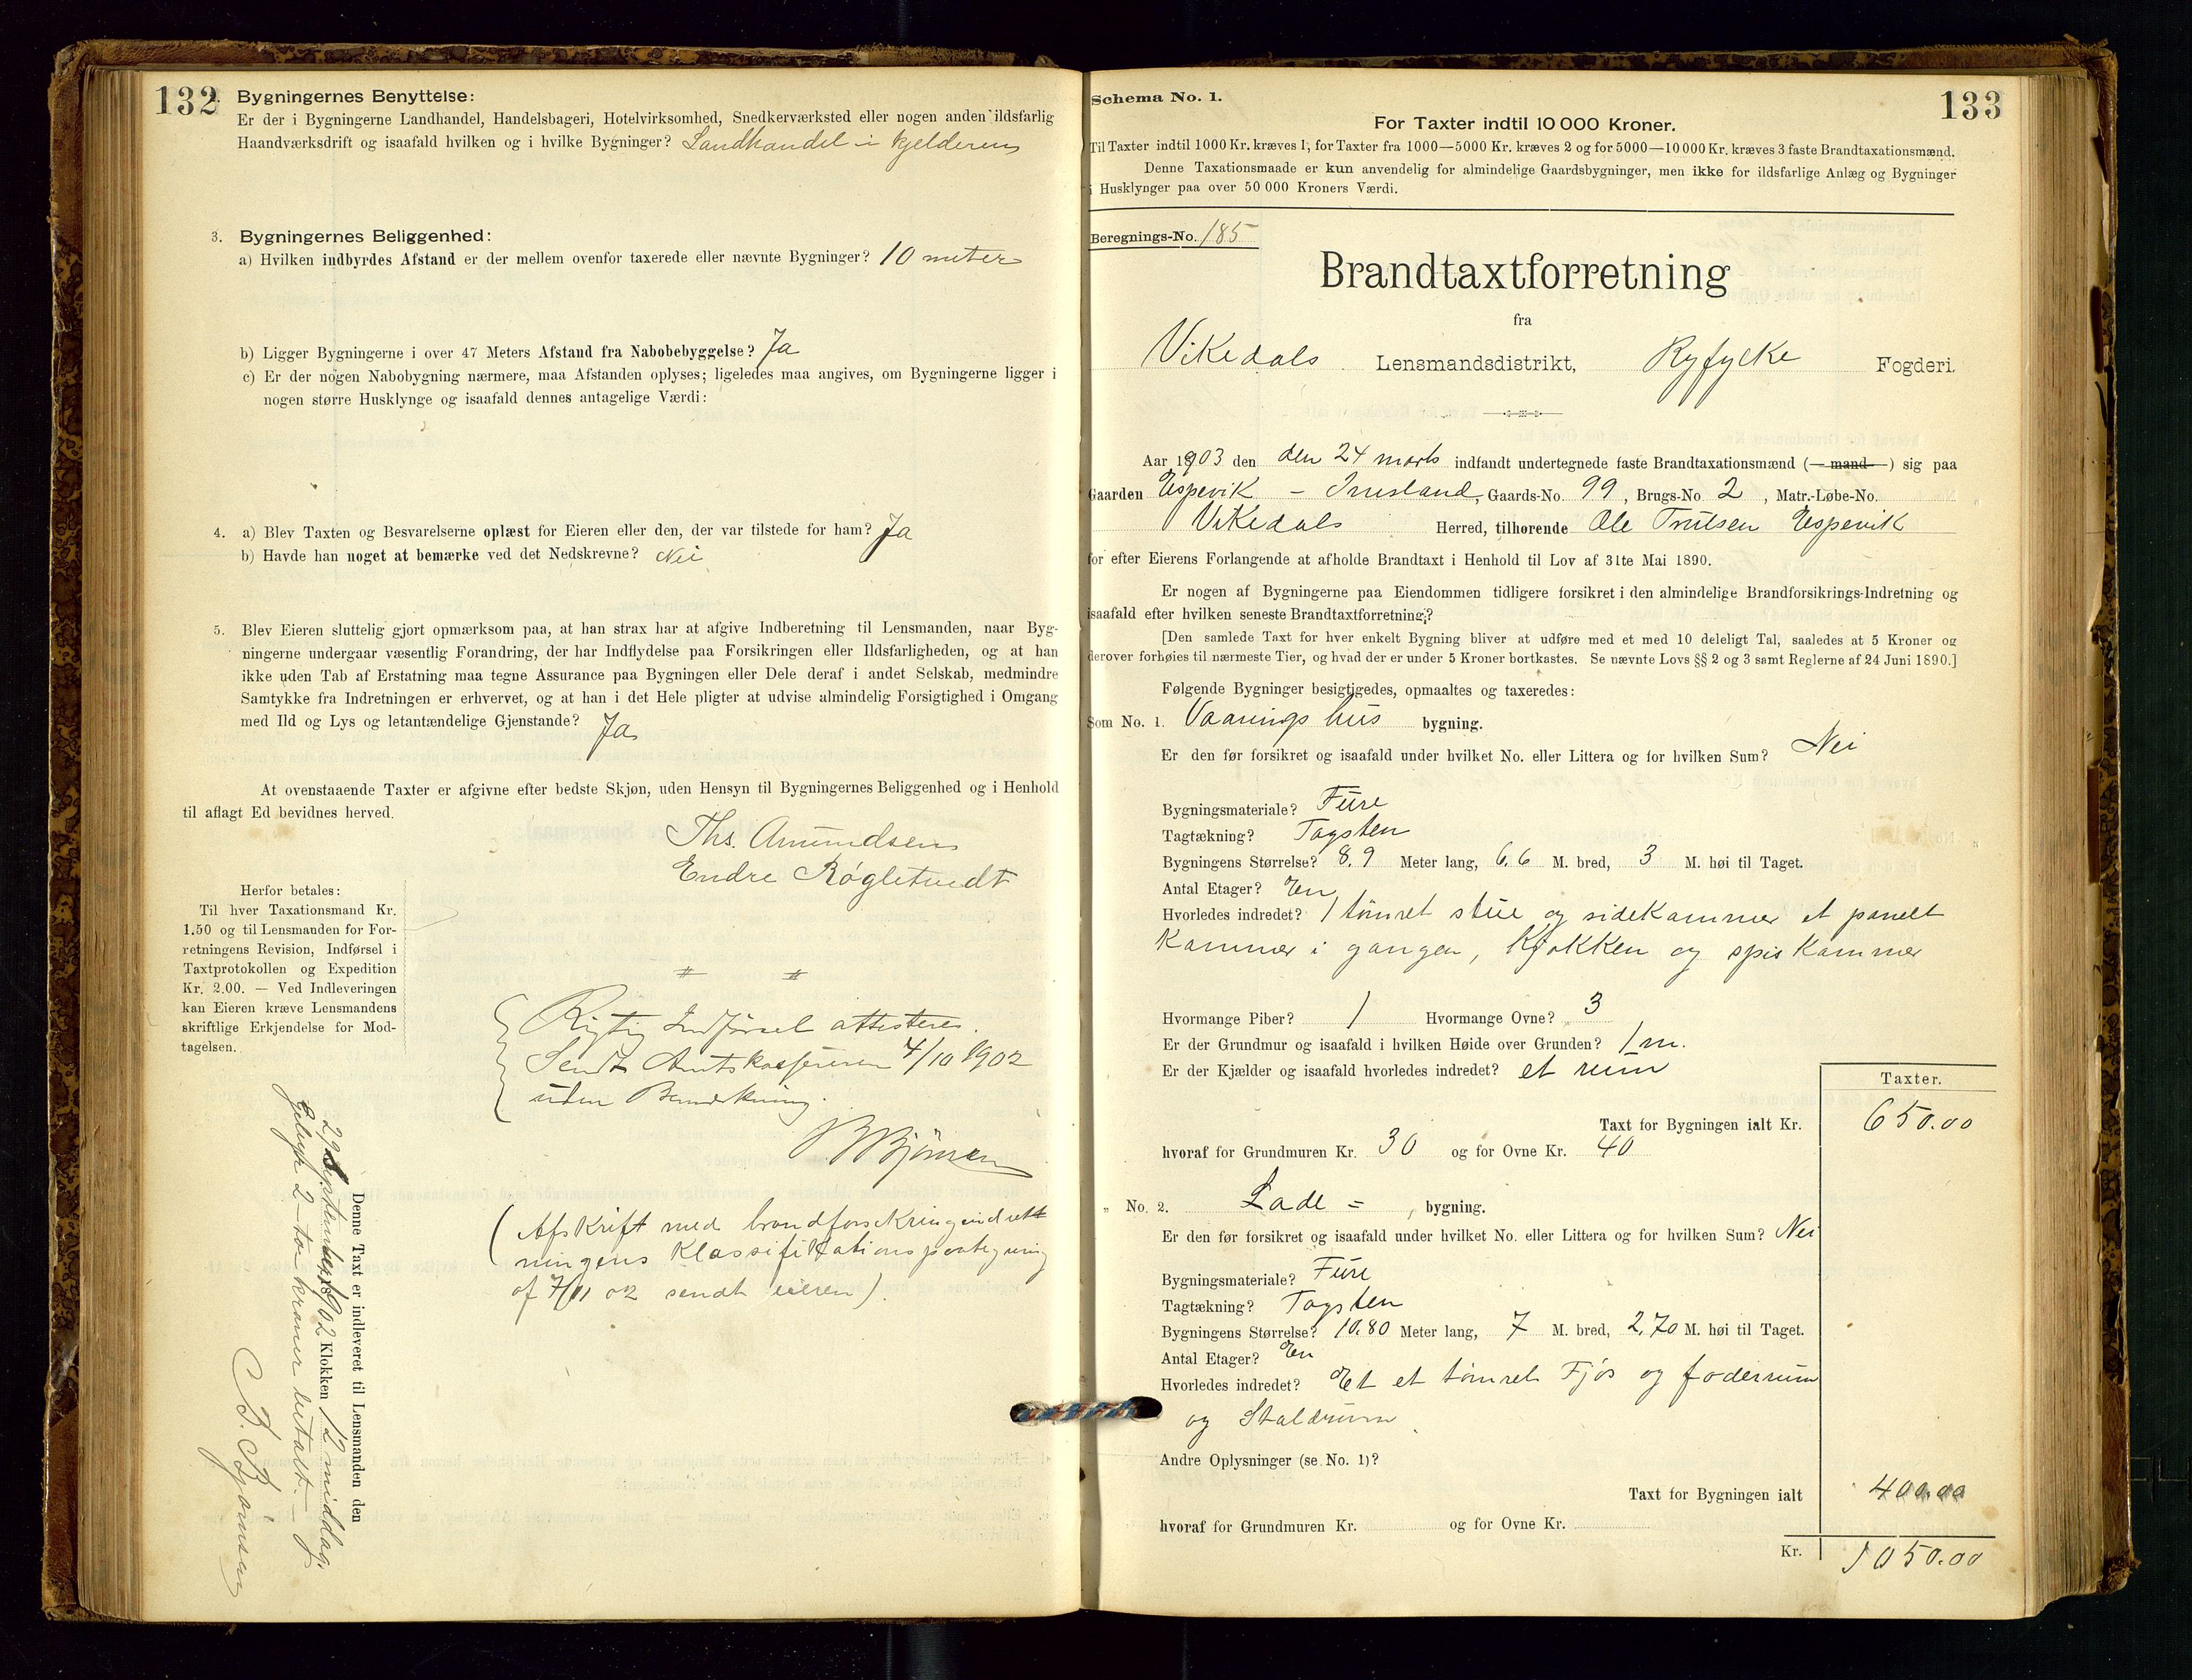 132
2. Bygningernes Benyttelse:
Er der i Bygningerne Landhandel, Handelsbageri, Hotelvirksomhed, Snedkerværksted eller nogen anden ildsfarlig
Haandværksdrift og isaafald hvilken og i hvilke Bygninger? Landhandel i kjelderen
3. Bygningernes Beliggenhed:
a) Hvilken indbyrdes Afstand er der mellem ovenfor taxerede eller nævnte Bygninger? 10 meter
b) Ligger Bygningerne i over 47 Meters Afstand fra Nabobebyggelse? Ja
c) Er der nogen Nabobygning nærmere, maa Afstanden oplyses; ligeledes maa angives, om Bygningerne ligger i
nogen større Husklynge og isaafald dennes antagelige Værdi:
4. a) Blev Taxten og Besvarelserne oplæst for Eieren eller den, der var tilstede for ham? Ja
b) Havde han noget at bemærke ved det Nedskrevne? Nei
5. Blev Eieren sluttelig gjort opmærksom paa, at han strax har at afgive Indberetning til Lensmanden, naar Byg-
ningerne undergaar væsentlig Forandring, der har Indflydelse paa Forsikringen eller Ildsfarligheden, og at han
ikke uden Tab af Erstatning maa tegne Assurance paa Bygningen eller Dele deraf i andet Selskab, medmindre
Samtykke fra Indretningen er erhvervet, og at han i det Hele pligter at udvise almindelig Forsigtighed i Omgang
med Ild og Lys og letantændelige Gjenstande? Ja
At ovenstaaende Taxter er afgivne efter bedste Skjøn, uden Hensyn til Bygningernes Beliggenhed og i Henhold
til aflagt Ed bevidnes herved.
Ths. Amundsen
Endre Røgletvedt
Herfor betales:
Til hver Taxationsmand Kr.
1.50 og til Lensmanden for For-
retningens Revision, Indførsel i
Taxtprotokollen og Expedition
Kr. 2.00. — Ved Indleveringen
kan Eieren kræve Lensmandens
skriftlige Erkjendelse for Mod-
tagelsen.
Rigtig Indførsel attesteres.
Sendt Amtskassereren 4/10 1902
uden Bemærkning.
B Bjørnsen
(Afskrift med brandforsikringsindrett
ningens Klassifikationspaategning
af 7/11 02 sendt eieren)
Denne Taxt er indleveret til Lensmanden den
29 September 1902 Klokken 12 middag.
Gebyr 2 - to kroner betalt. -
B. Bjørnsen
133
Schema No. 1.
For Taxter indtil 10 000 Kroner.
Til Taxter indtil 1000 Kr. kræves 1, for Taxter fra 1000—5000 Kr. kræves 2 og for 5000—10 000 Kr. kræves 3 faste Brandtaxationsmænd.
Denne Taxationsmaade er kun anvendelig for almindelige Gaardsbygninger, men ikke for ildsfarlige Anlæg og Bygninger
i Husklynger paa over 50 000 Kroners Værdi.
Beregnings-No. 185
Brandtaxtforretning
fra
Vikedals Lensmandsdistrikt, Ryfylke Fogderi.
Aar 1903 den den 24 marts indfandt undertegnede faste Brandtaxationsmænd (mand) sig paa
Gaarden Espevik - Imsland, Gaards-No. 99, Brugs-No. 2, Matr.-Løbe-No.
Vikedals Herred, tilhørende Ole Trulsen Espevik
for efter Eierens Forlangende at afholde Brandtaxt i Henhold til Lov af 31te Mai 1890.
Er nogen af Bygningerne paa Eiendommen tidligere forsikret i den almindelige Brandforsikrings-Indretning og
isaafald efter hvilken seneste Brandtaxtforretning?
[Den samlede Taxt for hver enkelt Bygning bliver at udføre med et med 10 deleligt Tal, saaledes at 5 Kroner og
derover forhøies til nærmeste Tier, og hvad der er under 5 Kroner bortkastes. Se nævnte Lovs §§ 2 og 3 samt Reglerne af 24 Juni 1890.]
Følgende Bygninger besigtigedes, opmaaltes og taxeredes:
Som No. 1. Vaaningshus bygning.
Er den før forsikret og isaafald under hvilket No. eller Littera og for hvilken Sum? Nei
Bygningsmateriale? Fure
Tagtækning? Tagsten
Bygningens Størrelse? 8.9 Meter lang, 6.6 M. bred, 3 M. høi til Taget.
Antal Etager? En
Hvorledes indredet? 1 tømret stue og sidekammer et panelt
kammer i gangen, Kjøkken og spiskammer
Hvormange Piber? 1 Hvormange Ovne? 3
Er der Grundmur og isaafald i hvilken Høide over Grunden? 1 m.
Er der Kjælder og isaafald hvorledes indredet? et rum
Taxter.
Taxt for Bygningen ialt Kr. 650.00
hvoraf for Grundmuren Kr. 30 og for Ovne Kr. 40
„ No. 2. Lade = bygning.
Er den før forsikret og isaafald under hvilket No. eller Littera og for hvilken Sum? Nei
Bygningsmateriale? Fure
Tagtækning? Tagsten
Bygningens Størrelse? 10.80 Meter lang, 7 M. bred, 2.70 M. høi til Taget.
Antal Etager? En
Hvorledes indredet? Et et tømret Fjøs og foderrum
og Staldrum
Andre Oplysninger (se No. 1)?
Taxt for Bygningen ialt 400.00
hvoraf for Grundmuren Kr. og for Ovne Kr.
Kr. 1050.00